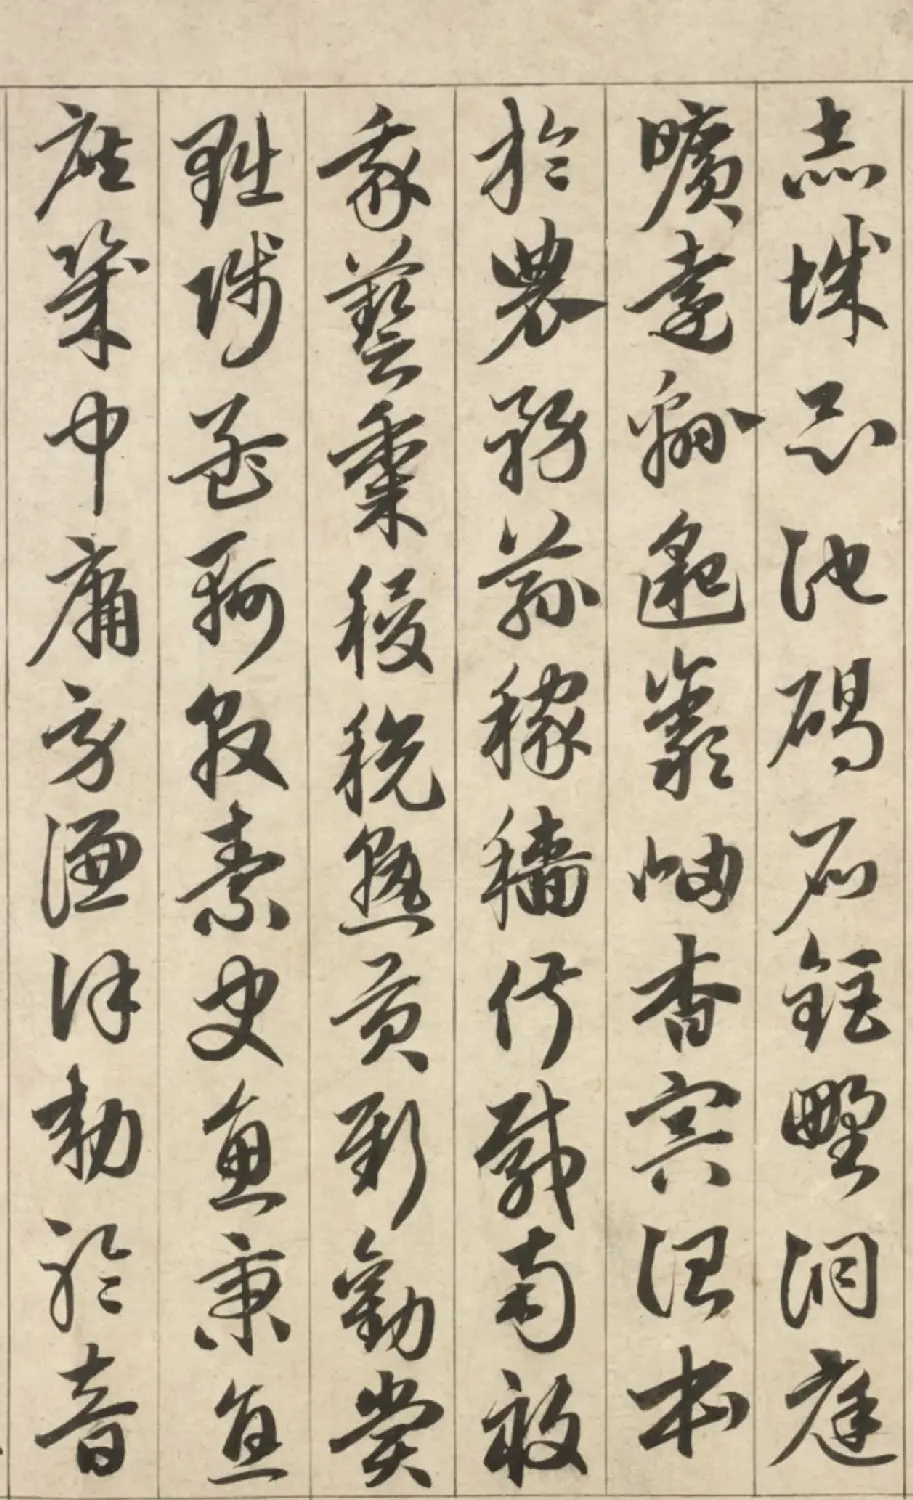 赤城昆池碣石鉅野洞庭
曠遠緜邈巖岫杳冥治本
於農務茲稼穡俶載南畝
我藝黍稷稅熟貢新勸賞
黜陟孟軻敦素史魚秉直
庶幾中庸勞謙謹勅聆音